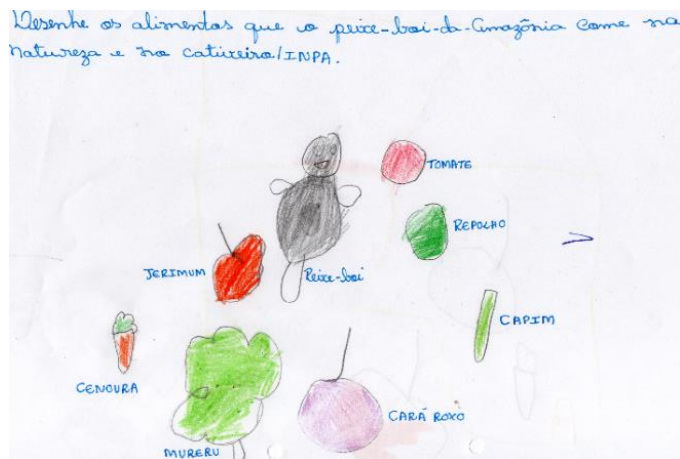 Desenhe os alimentos que o peixe-boi-da-Amazônia come na
natureza e no cativeiro/INPA.
TOMATE
REPOLHO
JERIMUM
Peixe-boi
CAPIM
CENOURA
CARÁ ROXO
MURERU